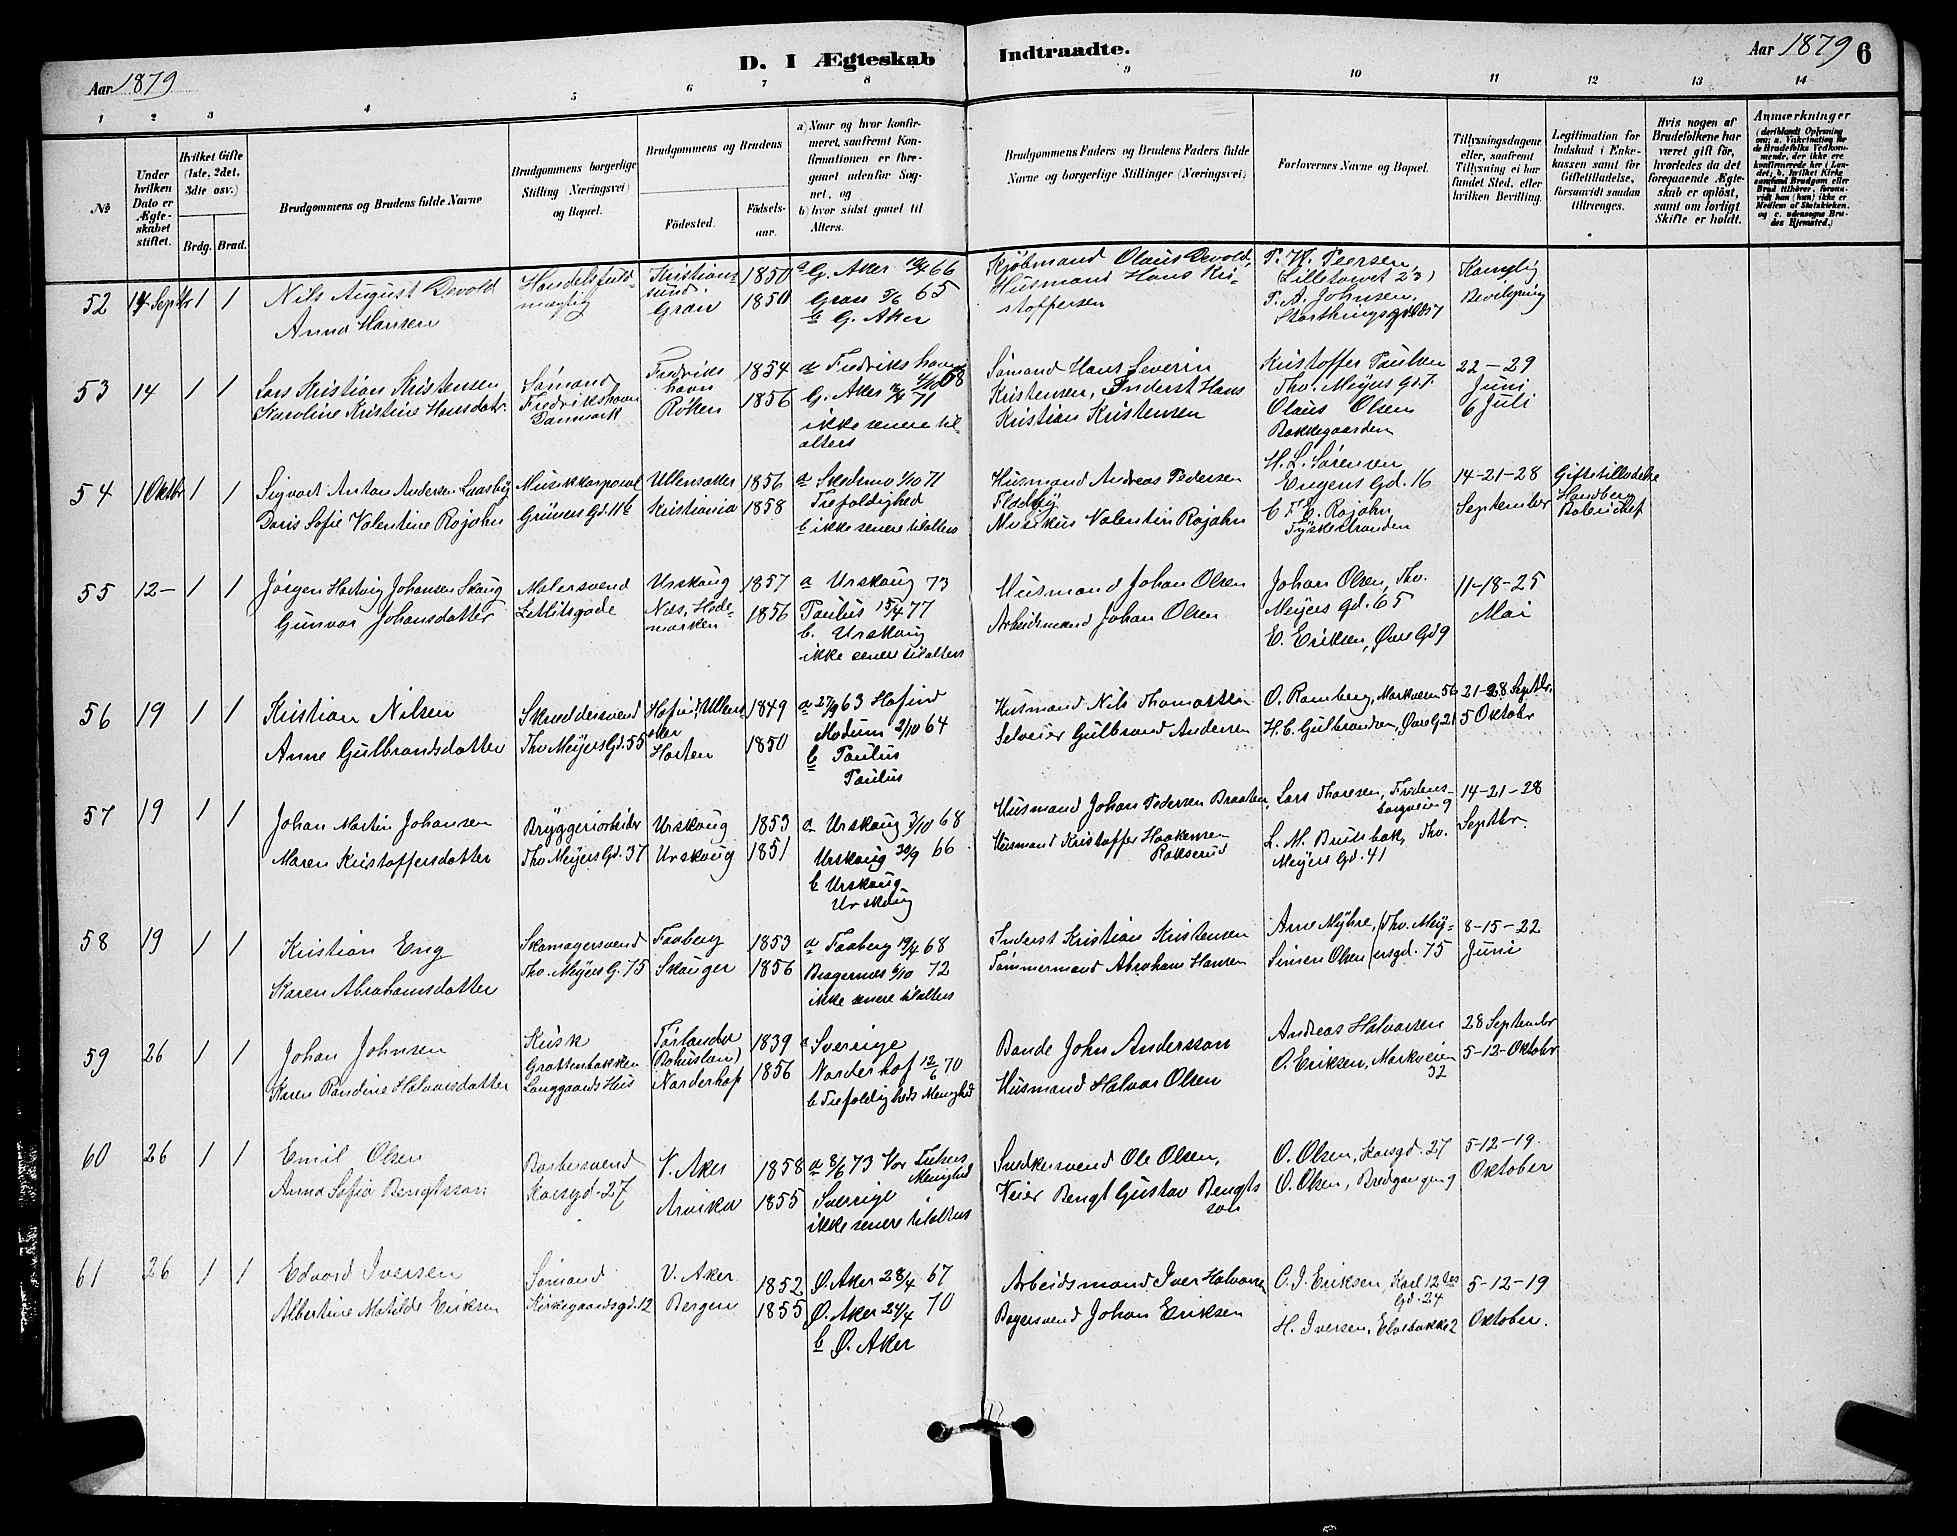 Aar 1879
D. I Ægteskab Indtraadte.
Aar 1879
6
1 2 3 4 5 6 7 8 9 10 11 12 13 14
№
Under hvilken Dato er Ægteskabet stiftet.
Hvilket Gifte (1ste, 2det, 3dte osv.)
Brdg. Brud.
Brudgommens og Brudens fulde Navne
Brudgommens borgerlige Stilling (Næringsvei) og Bopæl.
Brudgommens og Brudens
Fødested.
Fødselsaar.
a) Naar og hvor konfirmeret, saafremt Konfirmationen er foregaaet udenfor Sognet, og
b) hvor sidst gaaet til Alters.
Brudgommens Faders og Brudens Faders fulde Navne og borgerlige Stillinger (Næringsvei)
Forlovernes Navne og Bopæl.
Tillysningsdagene eller, saafremt Tillysning ei har fundet Sted, efter hvilken Bevilling.
Legitimation for Indskud i Enkekassen samt for Giftetilladelse, forsaavidt saadan tiltrænges.
Hvis nogen af Brudefolkene har været gift før, hvorledes da det foregaaende Ægteskab er opløst, samt om lovligt Skifte er holdt.
Anmærkninger
(deriblandt Oplysning om: a. Vakcination for de Brudefolks Vedkommende, der ikke ere konfirmerede her i Landet; b. hvilket Kirkesamfund Brudgom eller Brud tilhører, forsaavidt han (hun) ikke er Medlem af Statskirken, og c. udensogns Brudes Hjemsted.)
52 14 Septbr 1 1 Nils August Devold Handelsfuldmægtig Kristianssund 1850 a G. Aker 66 Kjøbmand Olaus Devold, Lilletorvet 23, Kongelig Bevilgning
Anna Hansen Gran 1850 Gran 5/6 65 b G. Aker Husmand Hans Kristoffersen P. A. Johnsen,
53 14 1 1 Lars Kristian Kristensen Sømand Fredrikshavn Danmark Fredrikshavn 1854 a Fredrikshavn 68 Sømand Hans Severin Kristensen, Kristoffer Paulsen Thv. Meyers Gd. 7. 22-29 Juni 6 Juli
Karoline Kristine Hansdatr. Røken 1856 G. Aker 71 ikke senere tilalters Inderst Hans Kristian Kristensen Olaus Olsen Bakkegaarden
54 1 Oktbr 1 1 Sigvart Anton Andersen Laasby Musikkorporal Grünersgd. 116 Ullensaker 1856 a Skedsmo 1/10 71 Husmand Andreas Pedersen H. L. Sørensen Engens Gd. 16 14-21-28 September Giftetilladelse
Doris Sofie Valentine Rojahn Kristiania 1858 Trefoldighed b ikke senere tilalters Musikus Valentin Rojahn Rojahn Tyskestranden
55 12- 1 1 Jørgen Hartvig Johansen Skaug Malersvend Urskoug 1857 a Urskoug 73 Husmand Johan Olsen Johan Olsen, Thv. Meyers Gd. 65 11-18-25 Mai
Gunvor Johansdatter Nes, Hedemarken 1856 Paulus 15/4 77 b. Urskoug ikke senere tilalters Arbeidsmand Johan Olsen E. Eriksen, Øvre Gd 9
56 19 1 1 Kristian Nilsen Skræddersvend Thv. Meyers Gd. 55 Hofind, Ullensaker 1849 a 27/9 63 Hofind Husmand Nils Thomassen O. Ramberg, Markveien 56 21-28 Septbr. 5 Oktobr
Anne Gulbrandsdatter Horten 1850 Modum 2/10 64 b Paulus Paulus Selveier Gulbrand Andersen H. C. Gulbrandsen, Øvre Gd 21
57 19 1 1 Johan Martin Johansen Bryggeriarbeider Thv. Meyers Gd. 37 Urskoug 1853 a Urskoug 3/10 68 Husmand Johan Pedersen Braaten Lars Thoresen, Fredensborgveien 9 14-21-28 Septbr.
Maren Kristoffersdatter Urskoug 1851 Urskoug 30/9 66 b Urskoug Urskoug Husmand Kristoffer Haakensen Rakserud L. M. Brudsbak, Thv. Meyers Gd. 41
58 19 1 1 Kristian Eng Skomagersvend Thv. Meyers G. 75 Faaberg 1853 a Faaberg 19/4 68 Inderst Kristian Kristensen Arne Myhre, (Thv. Mey- 8-15-22 Juni
Karen Abrahamsdatter Skauger 1856 Bragernes 6/10 72 ikke senere tilalters Tømmermand Abraham Hansen Simen Olsen (ersgd. 75
59 26 1 1 Johan Johnsen Kusk Grottenbakken (Bohuslan) 1839 a Sverige Bonde John Andersson Andreas Halvorsen 28 September 5-12-Oktobr
Karen Randine Halvorsdatter Norderhof 1856 Norderhof 12/6 70 b Trefoldigheds Menighed Husmand Halvor Olsen O. Eriksen, Markveien 32
60 26 1 1 Emil Olsen Barbersvend Korsgd. 27 V. Aker 1858 a 8/6 73 Vor Frelsers Menighed Snedkersvend Ole Olsen, O. Olsen, Korsgd. 27 5-12-19 Oktober
Anna Sofia Bengtsson Arvika 1855 Sverige ikke senere tilalters Bengt Gustav Bengtsson O. Olsen, Bredgangen 9
61 26 1 1 Edvard Iversen Sømand Kirkegaardsgd. 12 V. Aker 1852 Ø. Aker 28/4 67 Arbeidsmand Iver Halvorsen C. J. Eriksen, Karl 12tes Gd. 24 5-12-19 Oktober.
Albertine Matilde Eriksen Bergen 1855 Ø. Aker 24/4 70 b Ø. Aker Bagersvend Johan Eriksen H. Iversen, Elvebakke 2